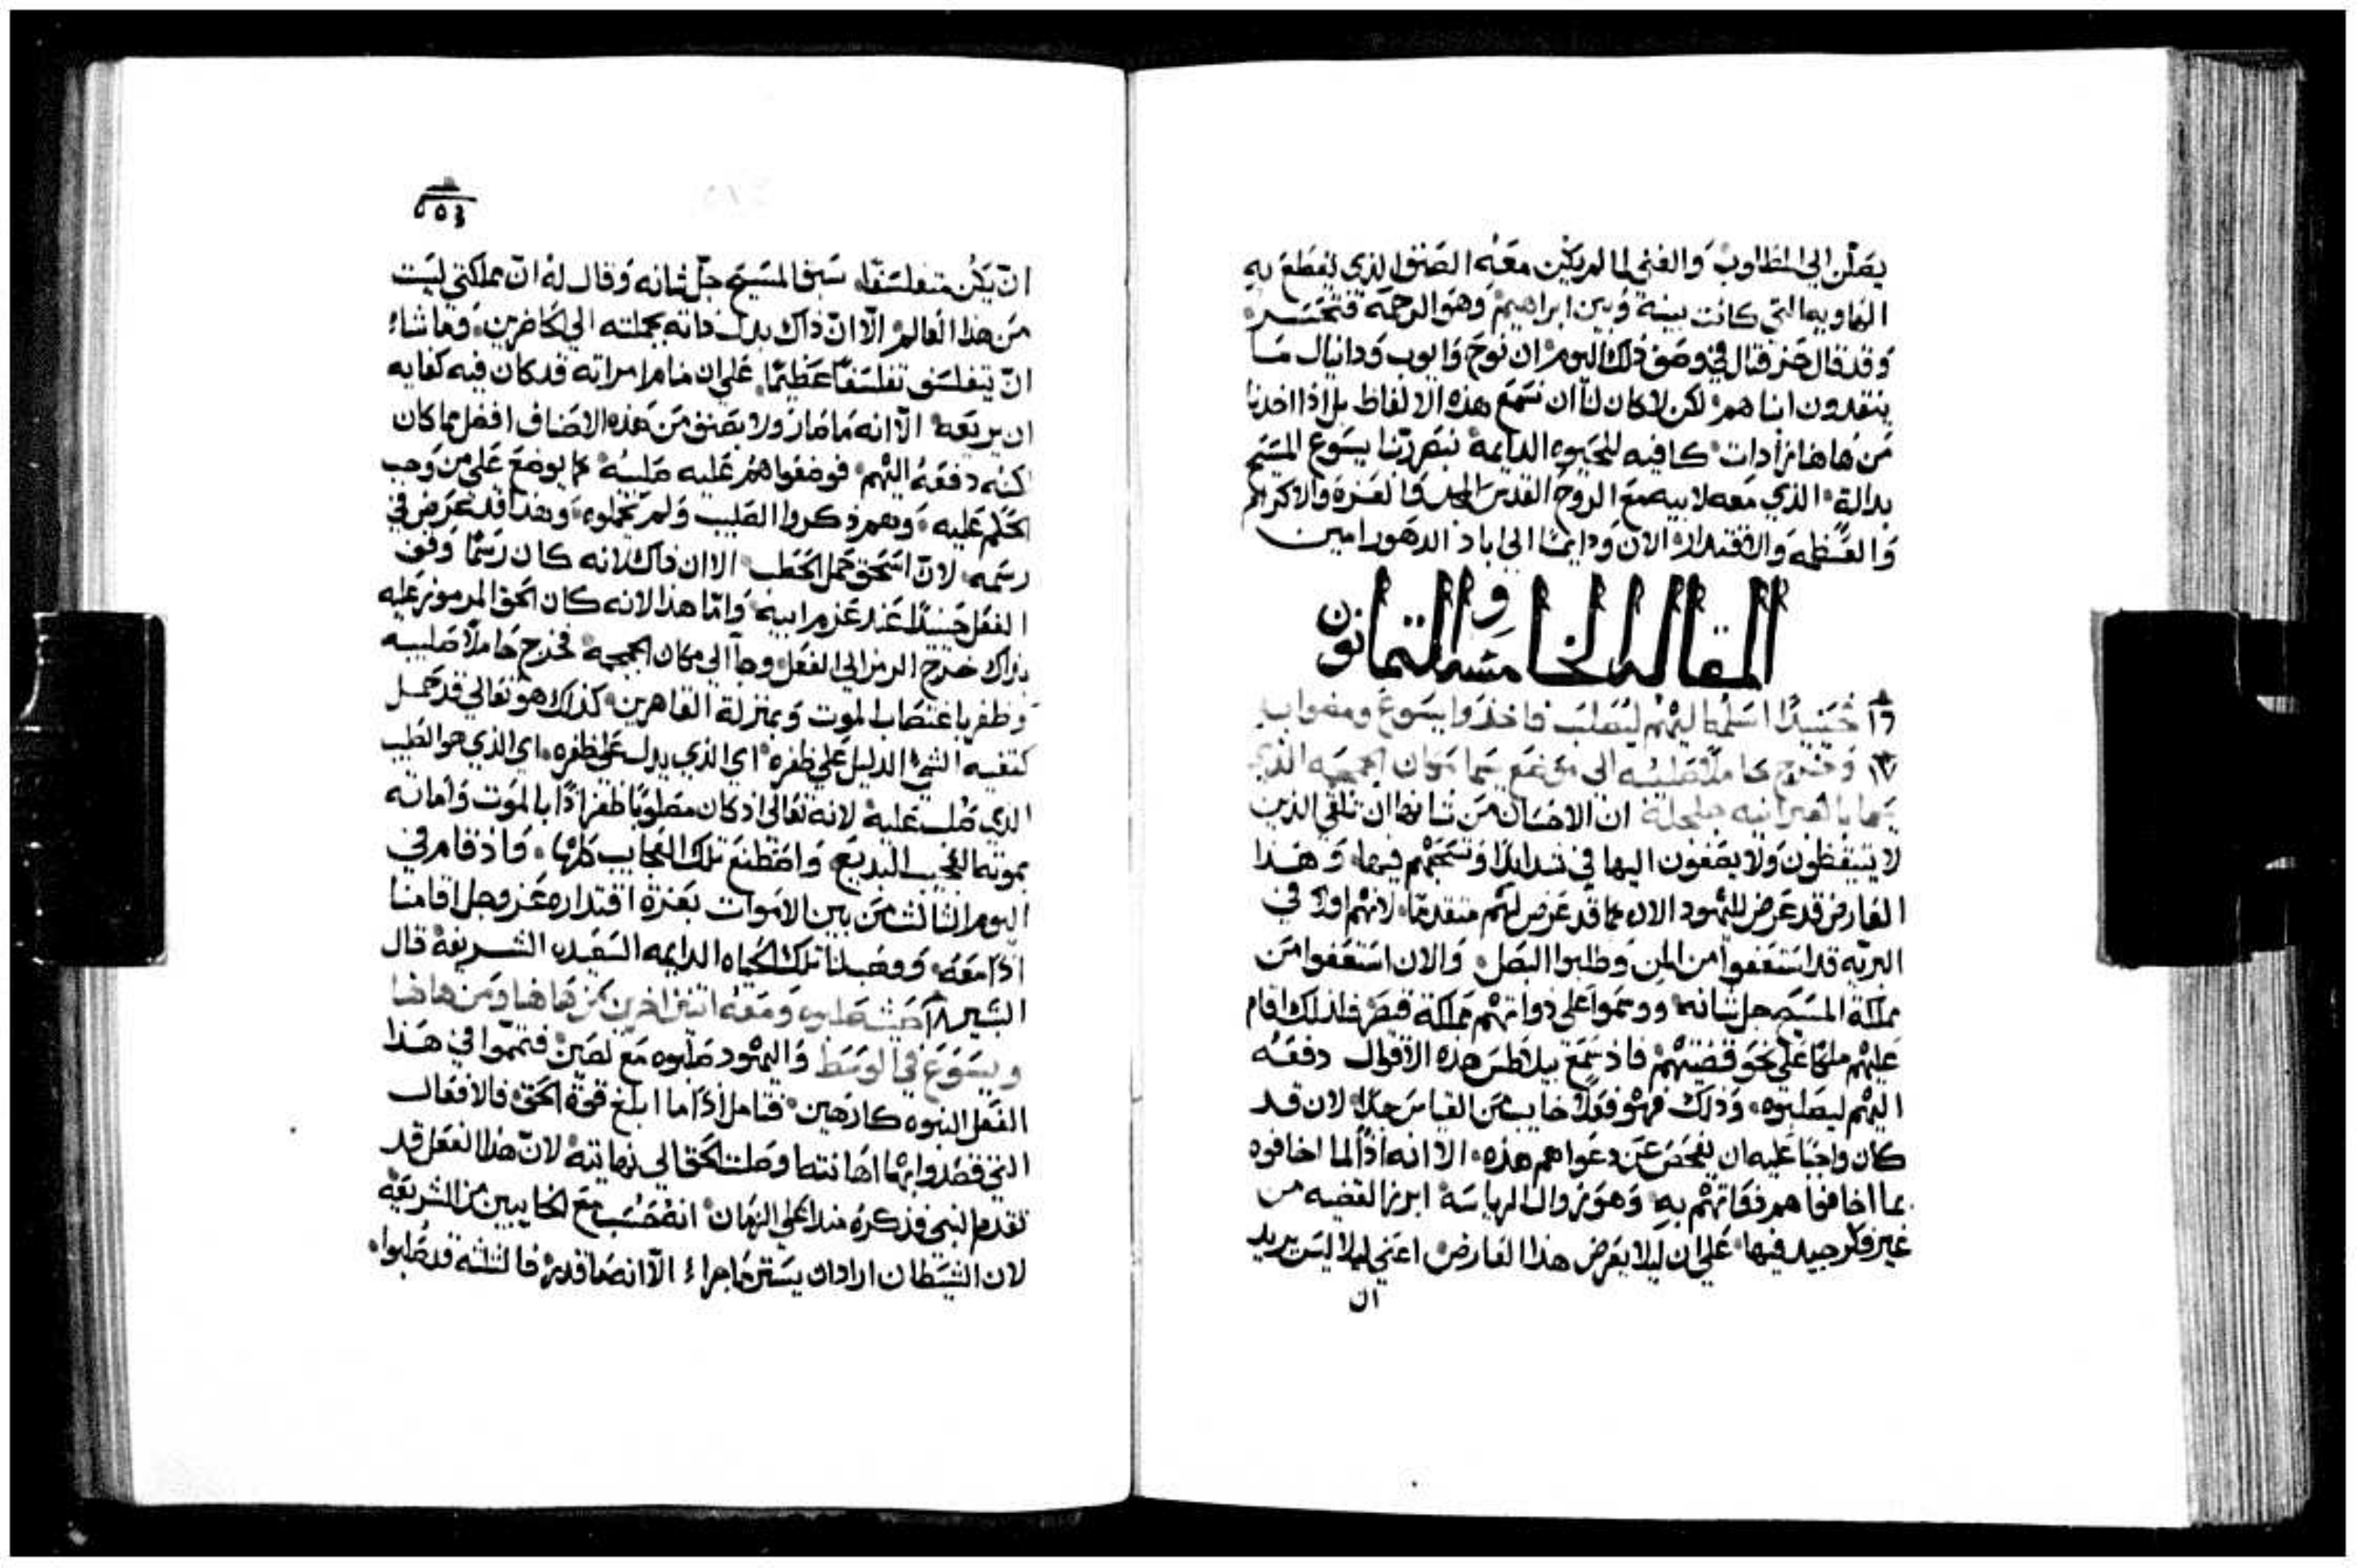 يصلن الي المطلوب والغني لما لم يكن معه الصنو الذي يقطع به
الهاويه التي كانت بينه وبين ابراهيم وهو الرحمه فتحسر
وقد قال حزقيال في وصف ذلك اليوم ان نوح وايوب ودانيال ما
ينقدون ابناهم لكن لا كان لنا ان نسمع هذه الالفاظ بل اذا اخذنا
من هاهنا زادات كافيه للحيوه الدايمه نبصر ربنا يسوع المسيح
بدالة الذي معه لابيه مع الروح القدس المجد والعزة والاكرام
والعظمه والاقتدار الان ودايمًا الي اباد الدهور امين
المقاله الخامسه والثمانون
١٦ حينيدًا اسلمه اليهم ليصلب فاخذوا يسوع ومضوا به
١٧ وخرج حاملًا صليبه الي موضع يسما مكان الجمجمه الذي
يسما بالعبرانيه جلجلة ان الاحسان من شانها ان تلقي الذين
لا يتيقظون ولا يصغون اليها في شدايد وتسجحهم فيها وهذا
العارض قد عرض لليهود الان مما قد عرض لهم متقدمًا لانهم اولا في
البريه قد استعفوا من المن وطلبوا البصل والان استعفوا من
مملكة المسيح جل شانه ووسموا علي ذواتهم مملكة قيصر فلذلك اقام
عليهم ملكًا علي نحو قضيتهم فاذ سمع بيلاطس هذه الاقوال دفعه
اليهم ليصلبوه وذلك فهو فعلًا خايب من القياس جدًا لان قد
كان واجبًا عليه ان يفحص عن دعواهم هذه الا انه اذًا لما اخافوه
بما اخافوا هم فوافاهم به وهو زوال الرياسة ابرز القضيه من
غير فكر جيد فيها علي ان ليلا يعرض هذا العارض اعني ليلا ليس يريد
ان
٥٥٣
ان يكن متفلسفًا سبق المسيح جل ثنانه وقال له ان مملكتي ليست
من هذا العالم الا ان ذاك بدل ذاته بجملته الي الحاضرين وما شاء
ان يتفلسف تفلسفًا عظيمًا علي ان منام امراته قد كان فيه كفايه
ان يردعه الا انه ما صار ولا بصنف من هذه الاصناف افضل مما كان
لكنه دفعه اليهم فوضعوا هم عليه صليبه كما يوضع علي من وجب
الحكم عليه وهم ذكروا الصليب ولم يحملوه وهذا قد عرض في
رسمه لان اسحق حمل الحطب الا ان ذاك لانه كان رسمًا وقف
الفعل حينيدًا عند عزم ابيه واما هذا لانه كان الحق المرموز عليه
بذاك خرج الرمز الي الفعل وجا الي مكان الجمجمه فخرج حاملًا صليبه
وظفر باغتصاب الموت وبمنزلة القاهرين كذلك هو تعالي قد حمل
كتفيه الشي الدليل علي ظفره اي الذي يدل علي ظفره اي الذي هو الصليب
الذي صلب عليه لانه تعالي اذ كان مصلوبًا ظفر اذًا بالموت واماته
بموته العجيب البديع واصطنع تلك العجايب كلها واذ قام في
اليوم الثالث من بين الاموات بعزة اقتداره عز وجل اقامنا
اذًا معه ووهب لنا تلك الحياه الدايمه السعيده الشريفة قال
البشير ١٨ حيث صلبوه ومعه اثنين اخرين من هاهنا ومن هاهنا
ويسوع في الوسط واليهود صلبوه مع لصين فتمموا في هذا
الفعل النبوه كارهين فتامل اذًا ما ابلغ قوة الحق فالافعال
التي قصدوا بها اهانته اوصلت الحق الي نهايته لان هذا الفعل قد
تقدم النبي فذكره منذ اعلي الزمان انه حُسب مع الخايبين من الشريعة
لان الشيطان اراد ان يستر ما جرا الا انه ما قدر فالثلثه قد صلبوا